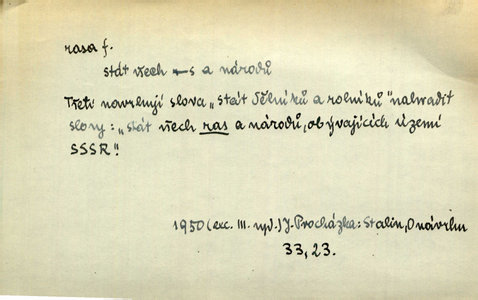 rasa f.
stát všech —s a národů
Třetí navrhují slova „stát dělníků a rolníků" nahradit
slovy: „stát všech ras a národů, obývajících území
SSSR".
1950 (exc. III. vyd.) J. Procházka: Stalin, O návrhu
33, 23.